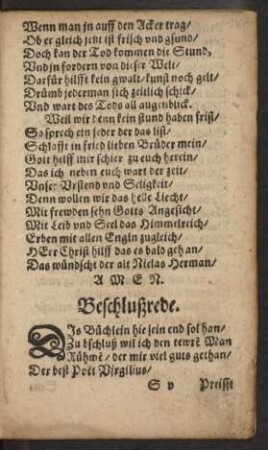 Wenn man jn auff den Acker trag/
Ob er gleich jetzt ist frisch vnd gsund/
Doch kan der Tod kommen die Stund/
Vnd jn fordern von dieser Welt/
Darfür hilfft kein gwalt/ kunst noch gelt/
Drümb jederman sich zeitlich schick/
Vnd wart des Tods all augenblick.
Weil wir denn kein stund haben frist/
So sprech ein jeder der das list/
Schlafft in fried lieben Brüder mein/
Gott helff mir schier zu euch herein/
Das ich neben euch wart der zeit/
Vnser Vrstend vnd Seligkeit/
Denn wollen wir das helle Liecht/
Mit frewden sehn Gotts Angesicht/
Mit Leib vnd Seel das Himmelreich/
Erben mit allen Engln zugleich/
HErr Christ hilff das es bald geschan/
Das wündscht der alt Niclas Herman/
A M E N.
Beschlußrede.
DJs Büchlein hie sein end sol han/
Zu bschluß wil ich den tewrē Man
Rühmē/ der mir viel guts gethan/
Der best Poët Virgilius/
S v Preisst